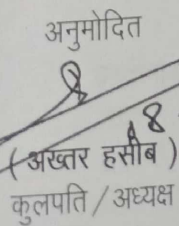 अनुमोदित
( अख्तर हसीब )
कुलपति / अध्यक्ष